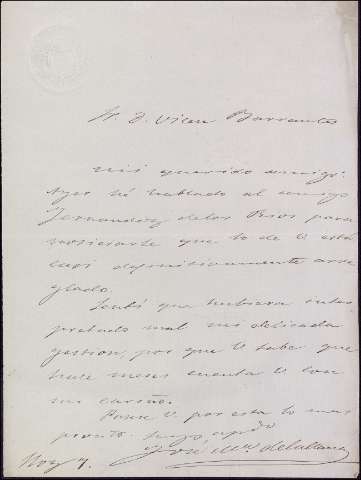 Sr. D. Vicen Barrantes
Mi querido amigo:
Ayer hé hablado al amigo
Fernandez de los Rios para
noticiarte que lo de V está
casi definitivamente arre
glado.
Sentí que hubiera inter
pretado mal mi delicada
gestion, por que V sabe que
hace meses cuenta V con
mi cariño.
Pase V. por esta lo mas
pronto. Suyo apdo
José Mª de
Hoy 7.